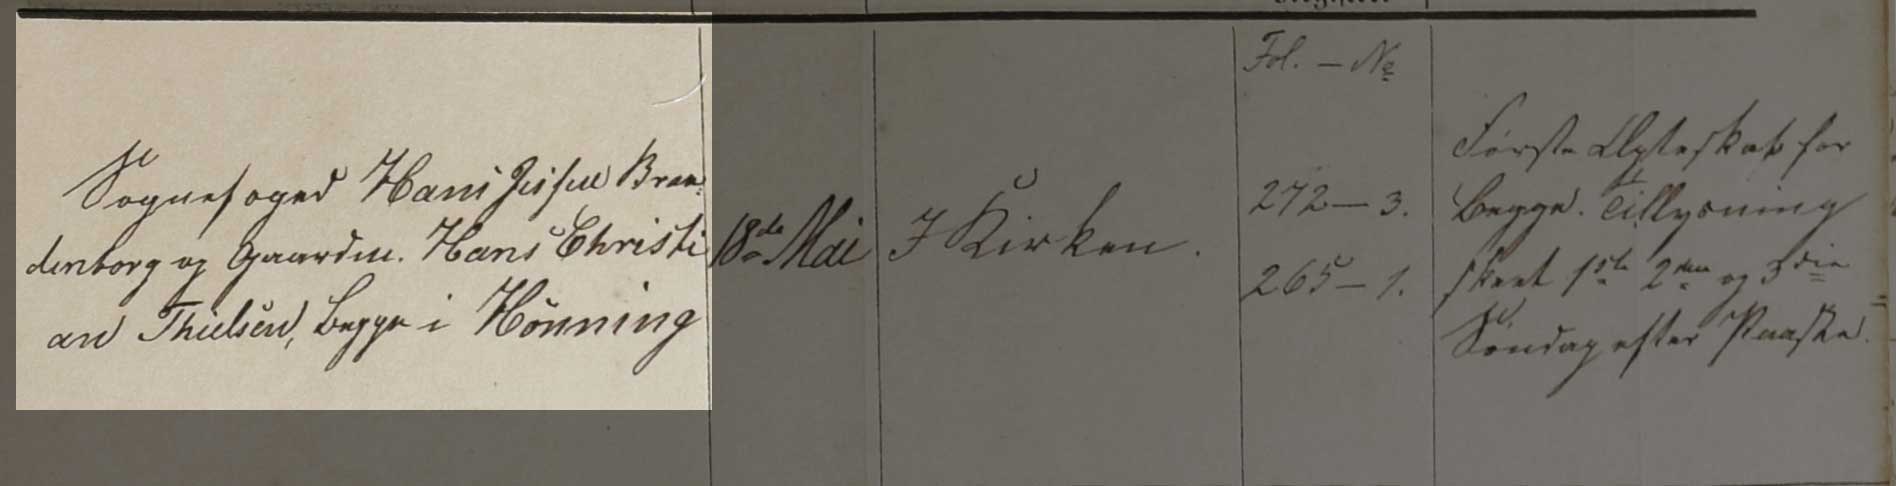 Fol. — No
Sognefoged Hans Jessen Bran-
denborg og Gaardm. Hans Christi
an Thielsen, begge i Hönning
18de Mai
I Kirken.
272 — 3.
265 — 1.
Første Ægteskab for
Begge. Tillysning
skeet 1ste 2den og 3die
Søndag efter Paaske.